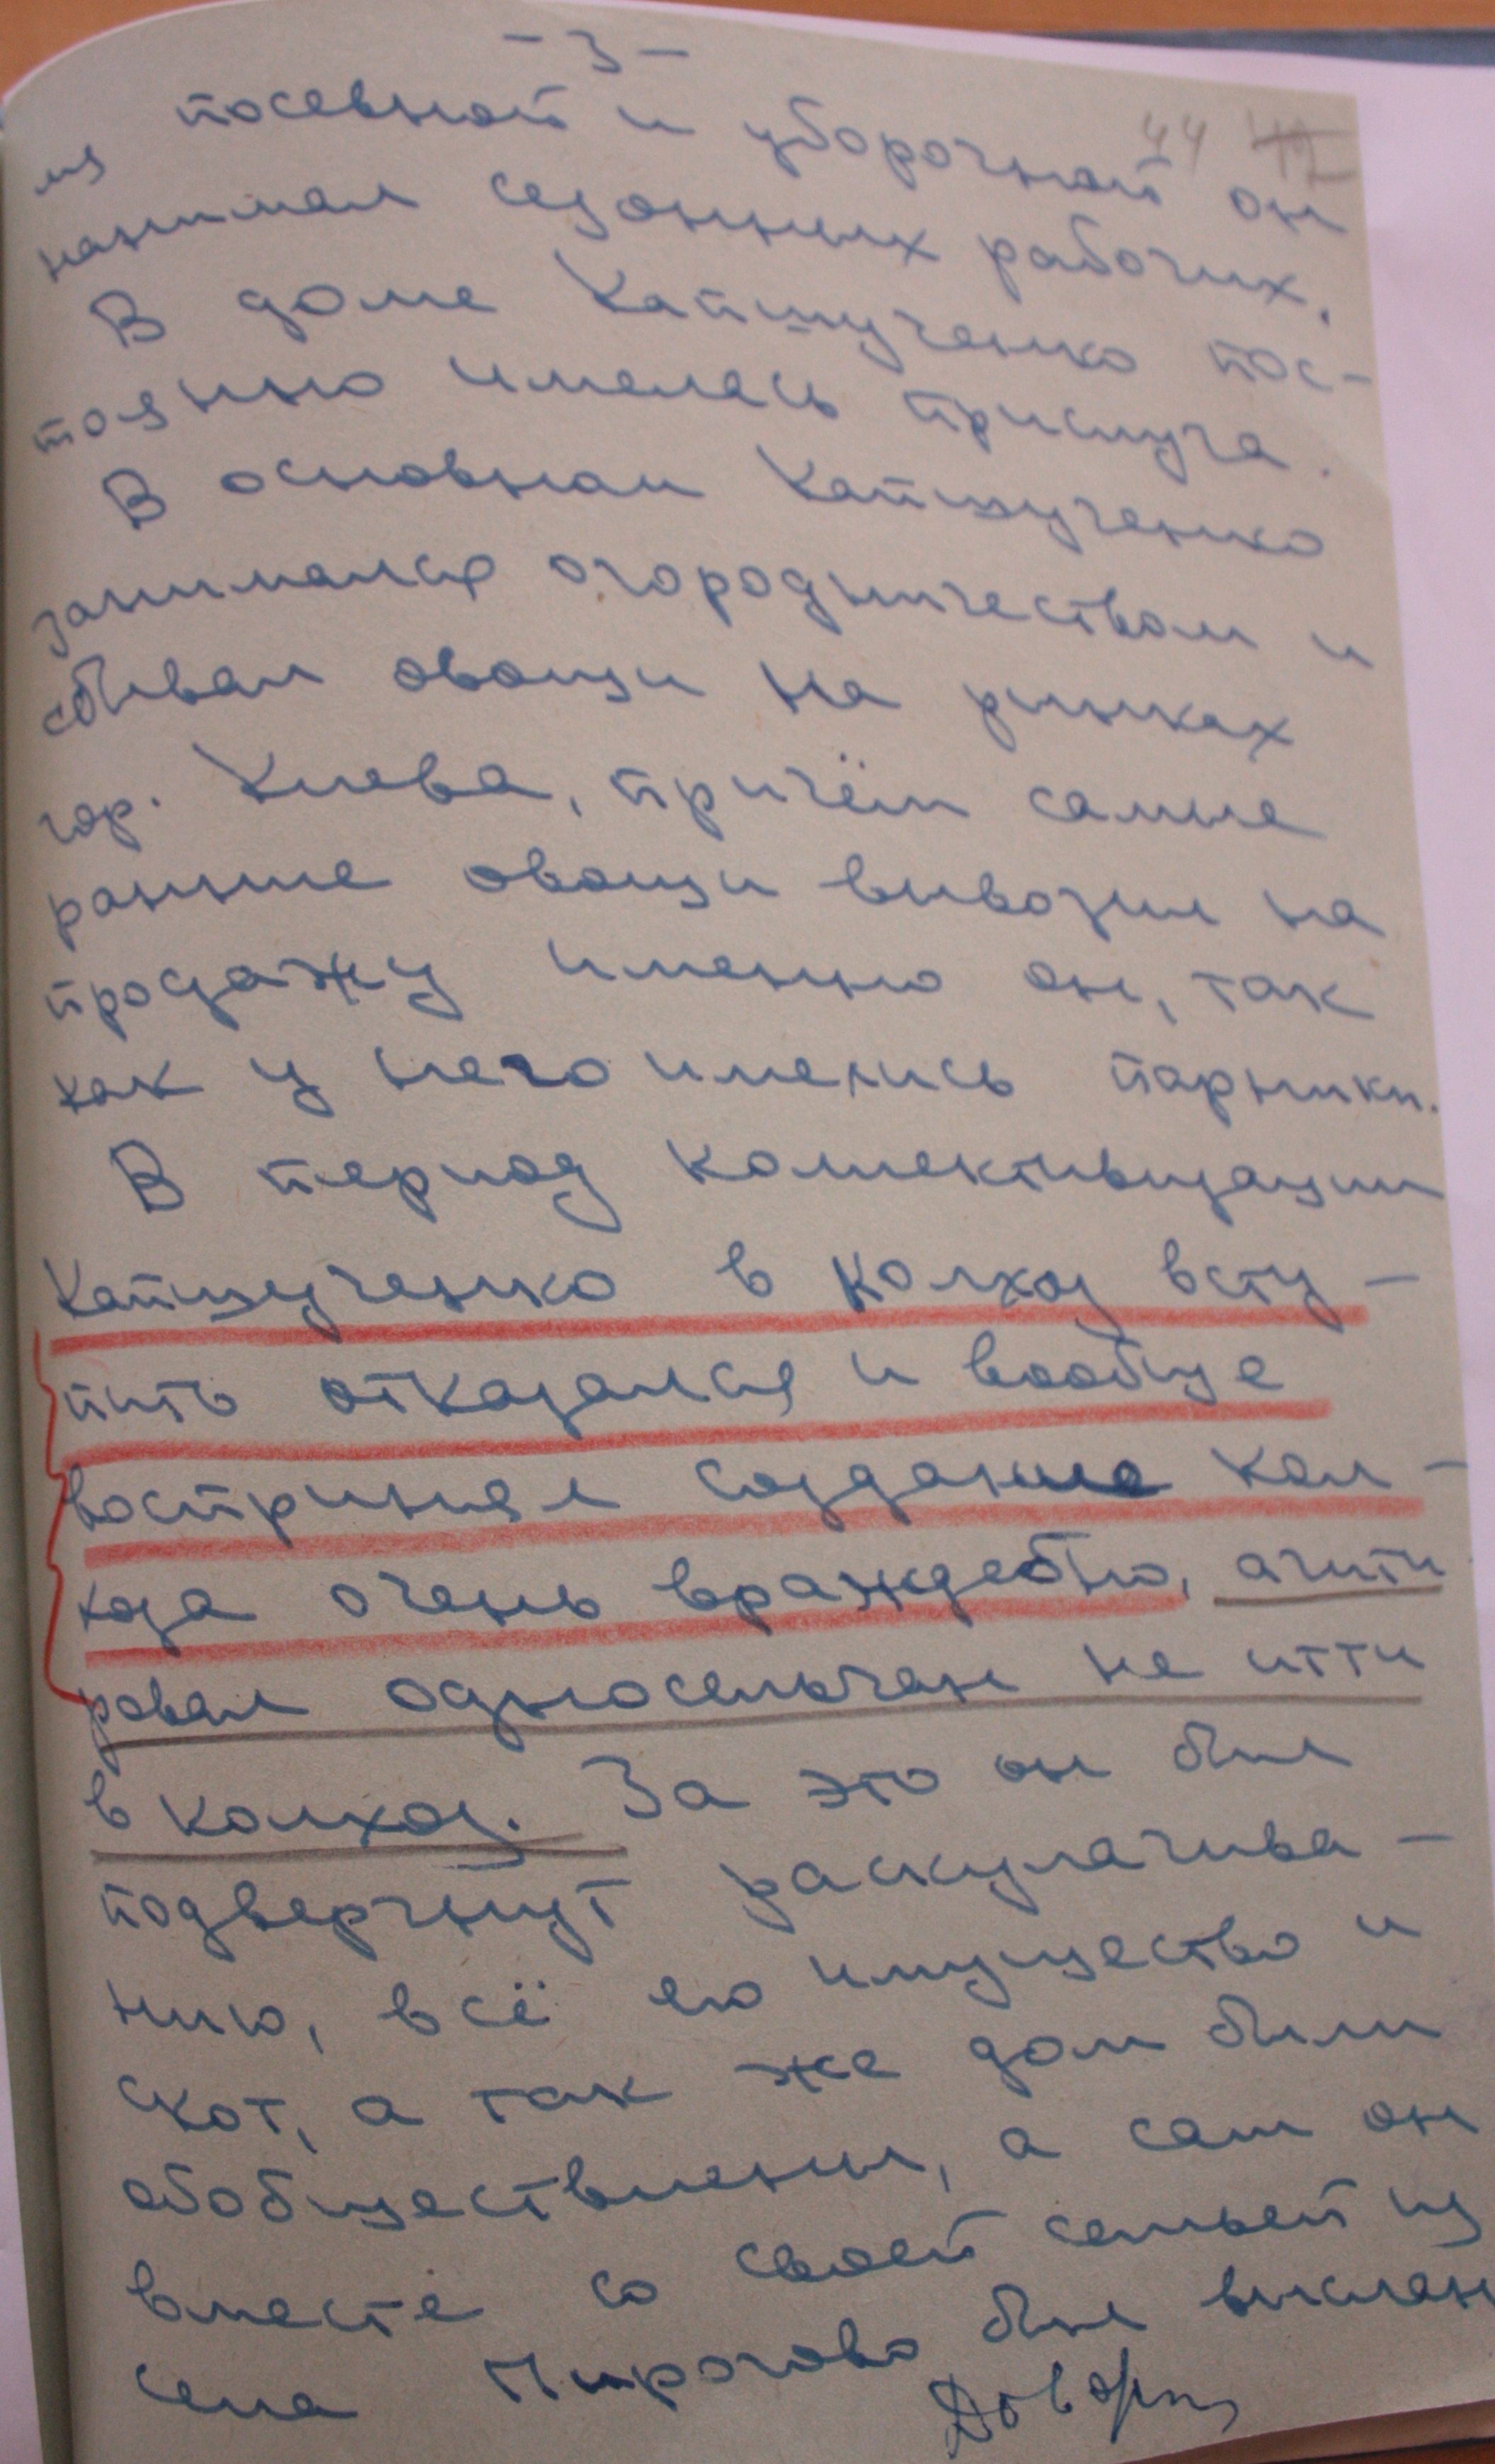 - 3 -
44 42
мя посевной и уборочной он
нанимал сезонных рабочих.
В доме Капшученко пос-
тоянно имелась прислуга.
В основном Капшученко
занимался огородничеством и
сбывал овощи на рынках
гор. Киева, причём самые
ранние овощи вывозил на
продажу именно он, так
как у него имелись парники.
В период коллективизации
Капшученко в колхоз всту-
пить отказался и вообще
воспринял создание кол-
хоза очень враждебно, агити
ровал односельчан не итти
в колхоз. За это он был
подвергнут раскулачива-
нию, всё его имущество и
скот, а так же дом были
обобществлены, а сам он
вместе со своей семьей из
села Пирогово был выслан